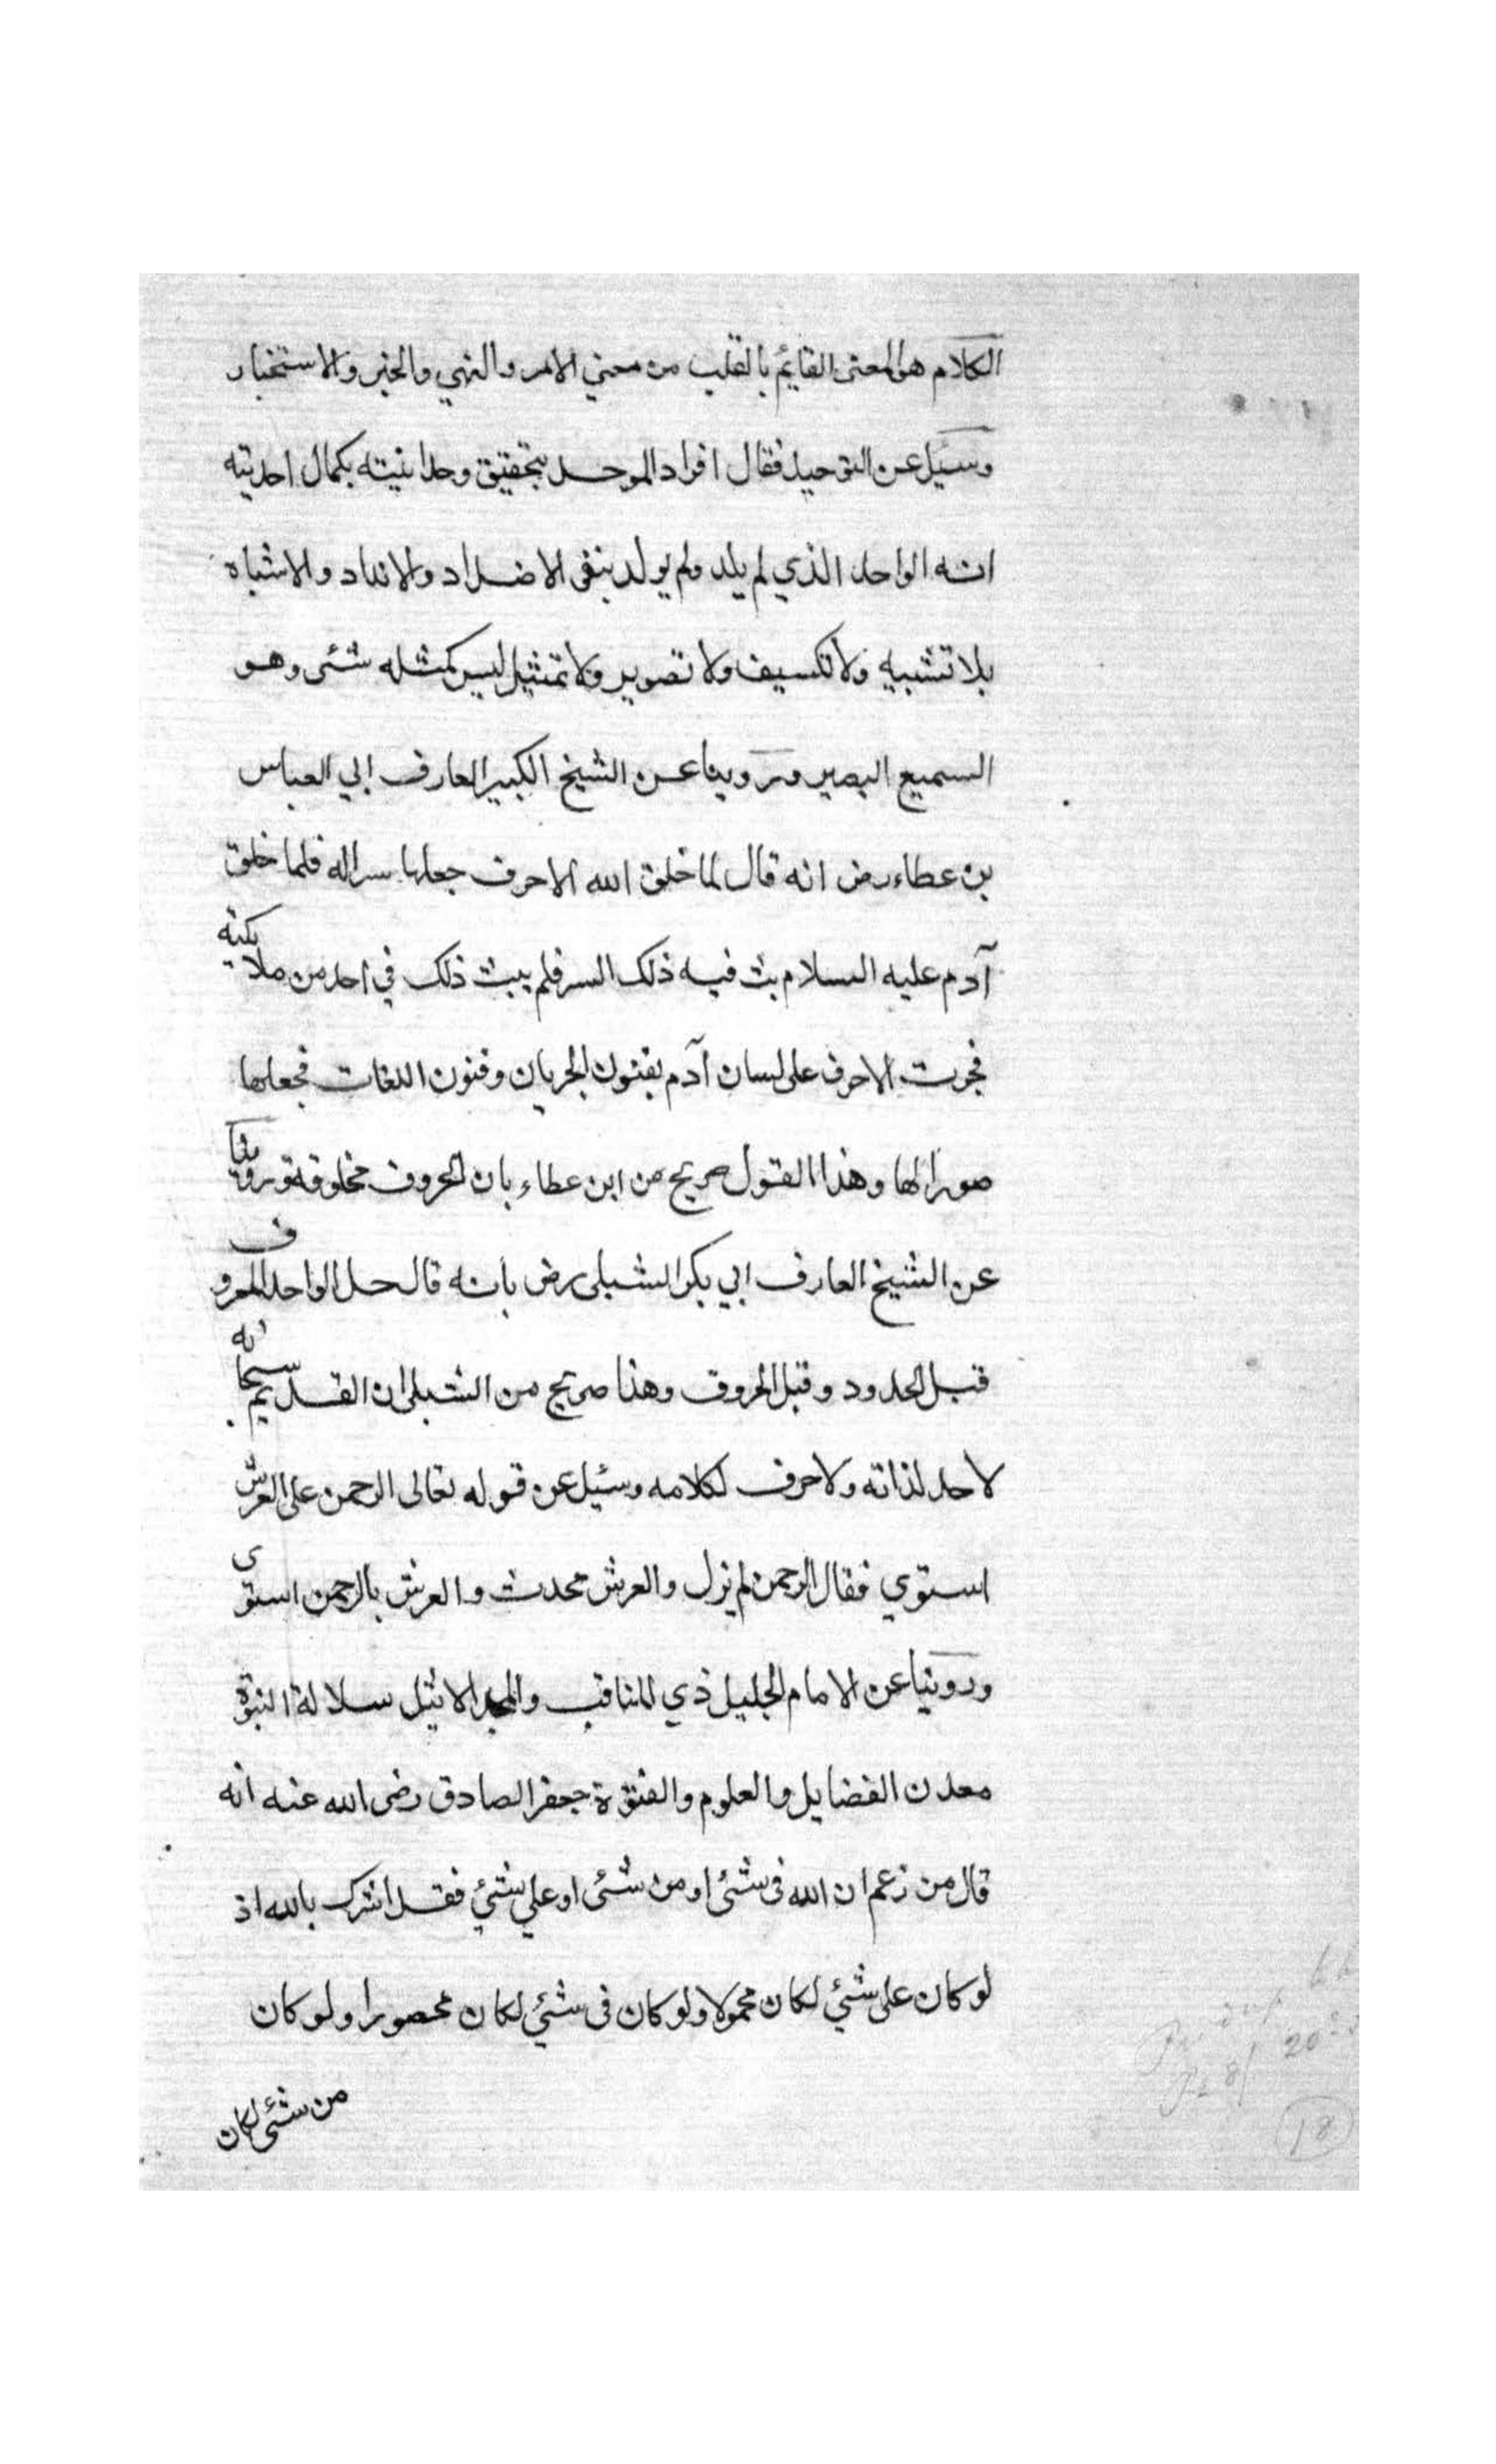 الكلام هو المعنى القايم بالقلب من معني الامر والنهي والخبر والاستخبار
وسئيل عن التوحيد فقال افراد الموحد بتحقيق وحدانيته بكمال احديته
انه الواحد الذي لم يلد ولم يولد بنفى الاضداد والانداد والاشباه
بلا تشبيه ولا تكييف ولا تصوير ولا تمثيل ليس كمثله شئى وهو
السميع البصير وروينا عن الشيخ الكبير العارف ابي العباس
بن عطاء رض انه قال لما خلق الله الاحرف جعلها سرا له فلما خلق
آدم عليه السلام بث فيه ذلك السر فلم يبث ذلك في احد من ملايكته
فجرت الاحرف على لسان آدم بفنون الجريان وفنون اللغات فجعلها
صورا لها وهذا القول صريح من ابن عطاء بان الحروف مخلوقة وروينا
عن الشيخ العارف ابي بكر الشبلى رض بانه قال حل الواحد المعروف
قبل الحدود وقبل الحروف وهذا صريح من الشبلى ان القديم سبحانه
لا حد لذاته ولا حرف لكلامه وسئيل عن قوله تعالى الرحمن على العرش
استوي فقال الرحمن لم يزل والعرش محدث والعرش بالرحمن استوى
وروينا عن الامام الجليل ذي المناقب والمجد الاثيل سلالة النبوة
معدن الفضايل والعلوم والفتوة جعفر الصادق رضى الله عنه انه
قال من زعم ان الله فى شئى او من شئى او علي شئي فقد اشرك بالله اذ
لو كان على شئي لكان محمولا ولو كان فى شئي لكان محصورا ولو كان
من شئى لكان
18